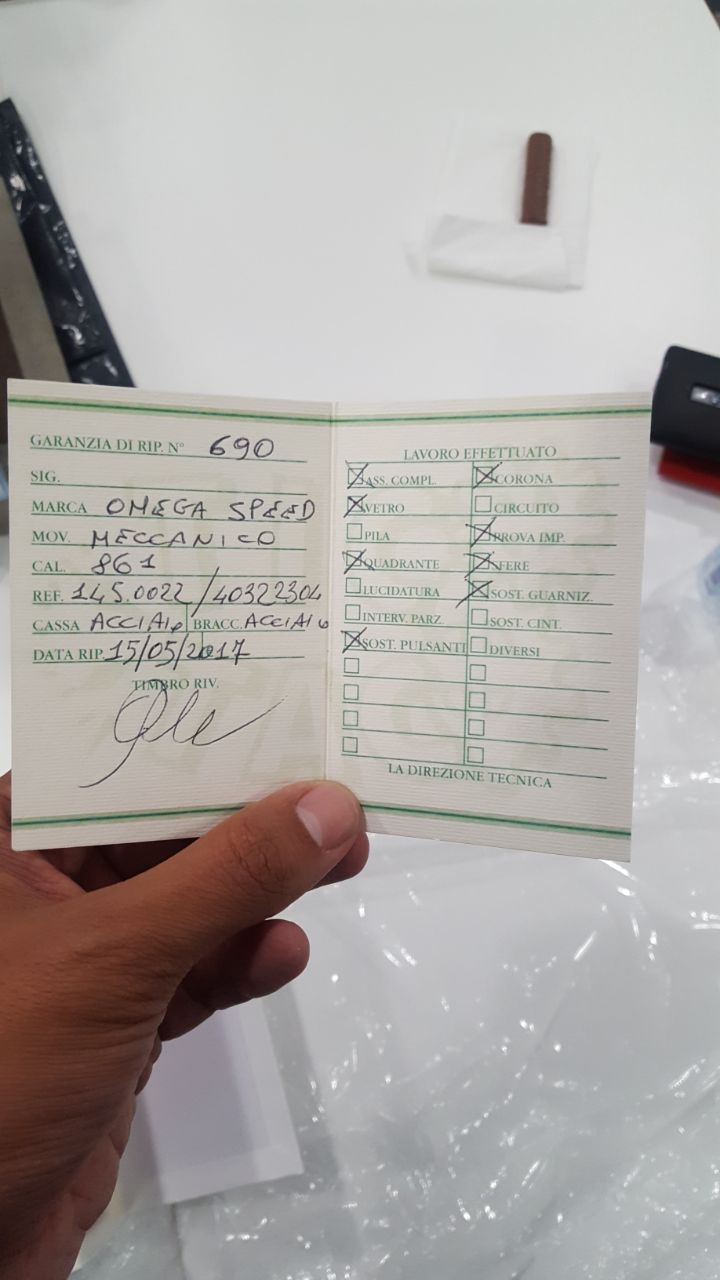 GARANZIA DI RIP. N° 690
SIG.
MARCA OMEGA SPEED
MOV. MECCANICO
CAL. 861
REF. 145.0022/40322304
CASSA ACCIAIO BRACC. ACCIAIO
DATA RIP. 15/05/2017
TIMBRO RIV.
LAVORO EFFETTUATO
ASS. COMPL. CORONA
VETRO CIRCUITO
PILA PROVA IMP.
QUADRANTE SFERE
LUCIDATURA SOST. GUARNIZ.
INTERV. PARZ. SOST. CINT.
SOST. PULSANTI DIVERSI
LA DIREZIONE TECNICA